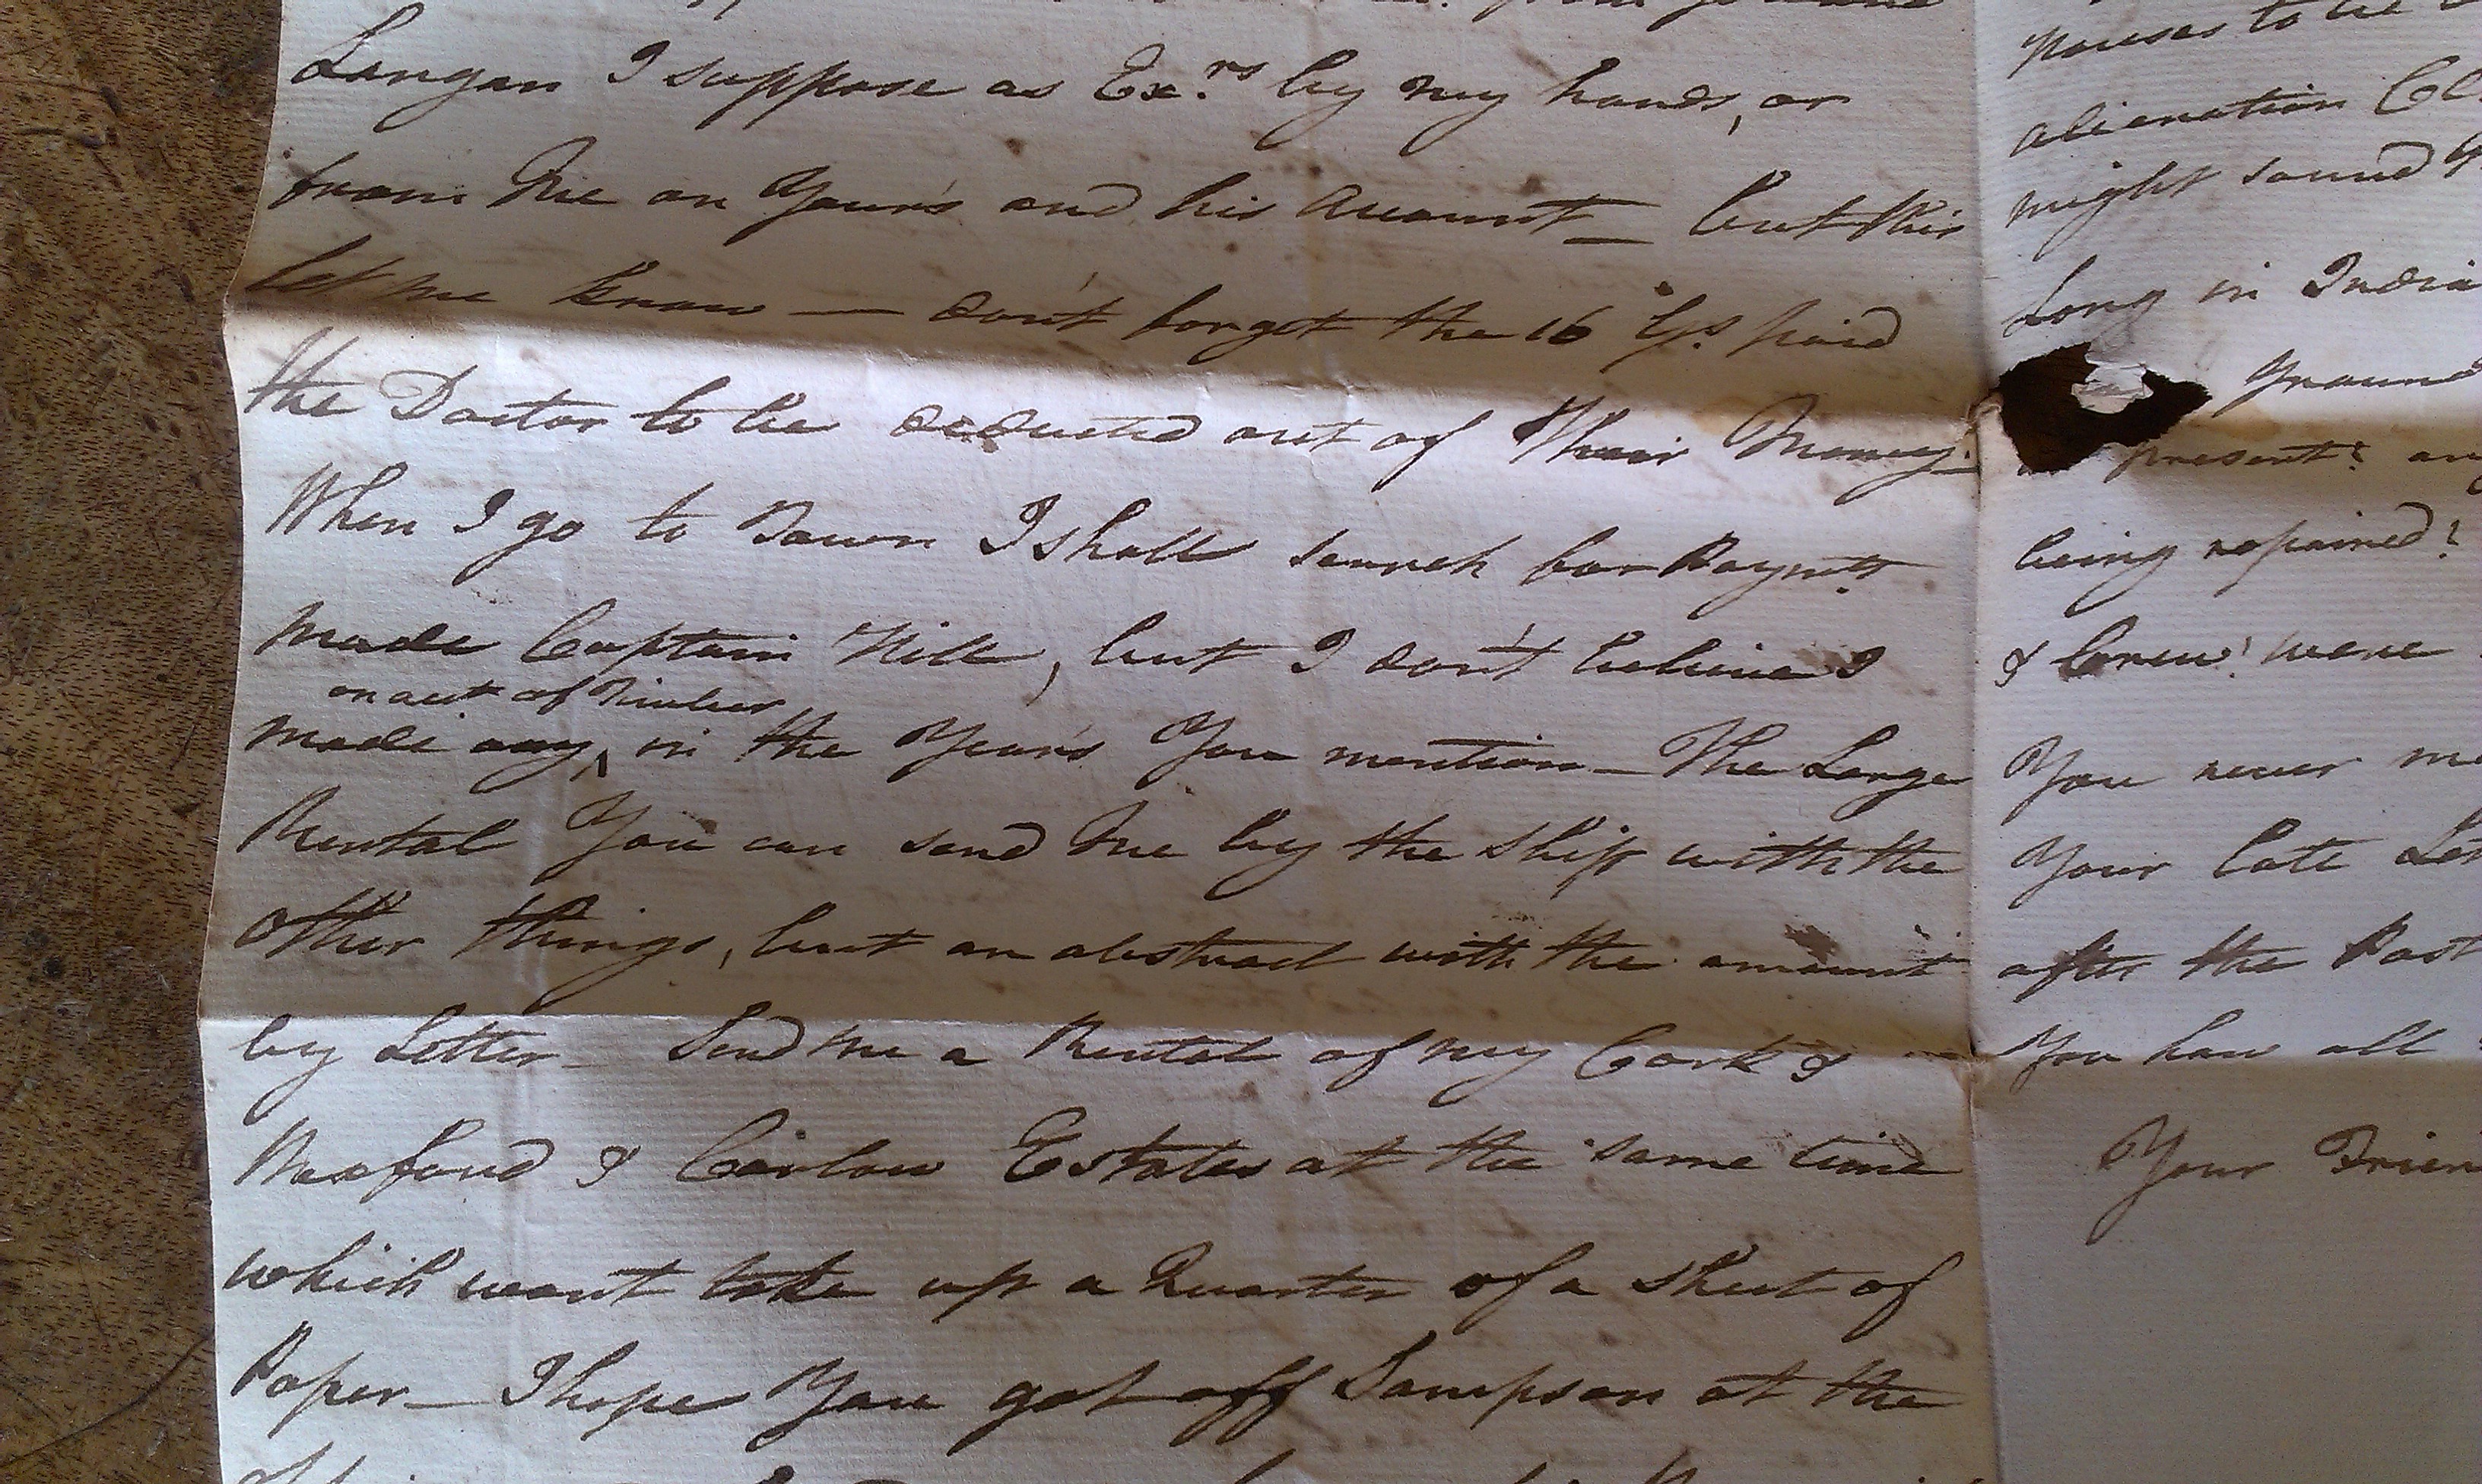 Langan I suppose as Ex.rs by my hands, or
from Me on Your's and his Account_ but this
let me know — don't forget the 16 Gs. paid
the Doctor to be deducted out of Their Money.
When I go to Town I shall search for Paymts.
made Captain Hill, but I don't believe I
on acct of Timber
made any, in the Years You mention_ The Large
Rental You can send Me by the Ship with the
Other things, but an abstract with the amount
by Letter_ Send Me a Rental of my Cork &
Wexford & Carlow Estates at the same time
which wont take up a Quarter of a Sheet of
Paper_ I hope You got off Sampson at the
to be
alienation
might sound
Long in India
Ground
present? any
being repaired?
& Carew? were
You never
Your late
after the Post
You have all
Your